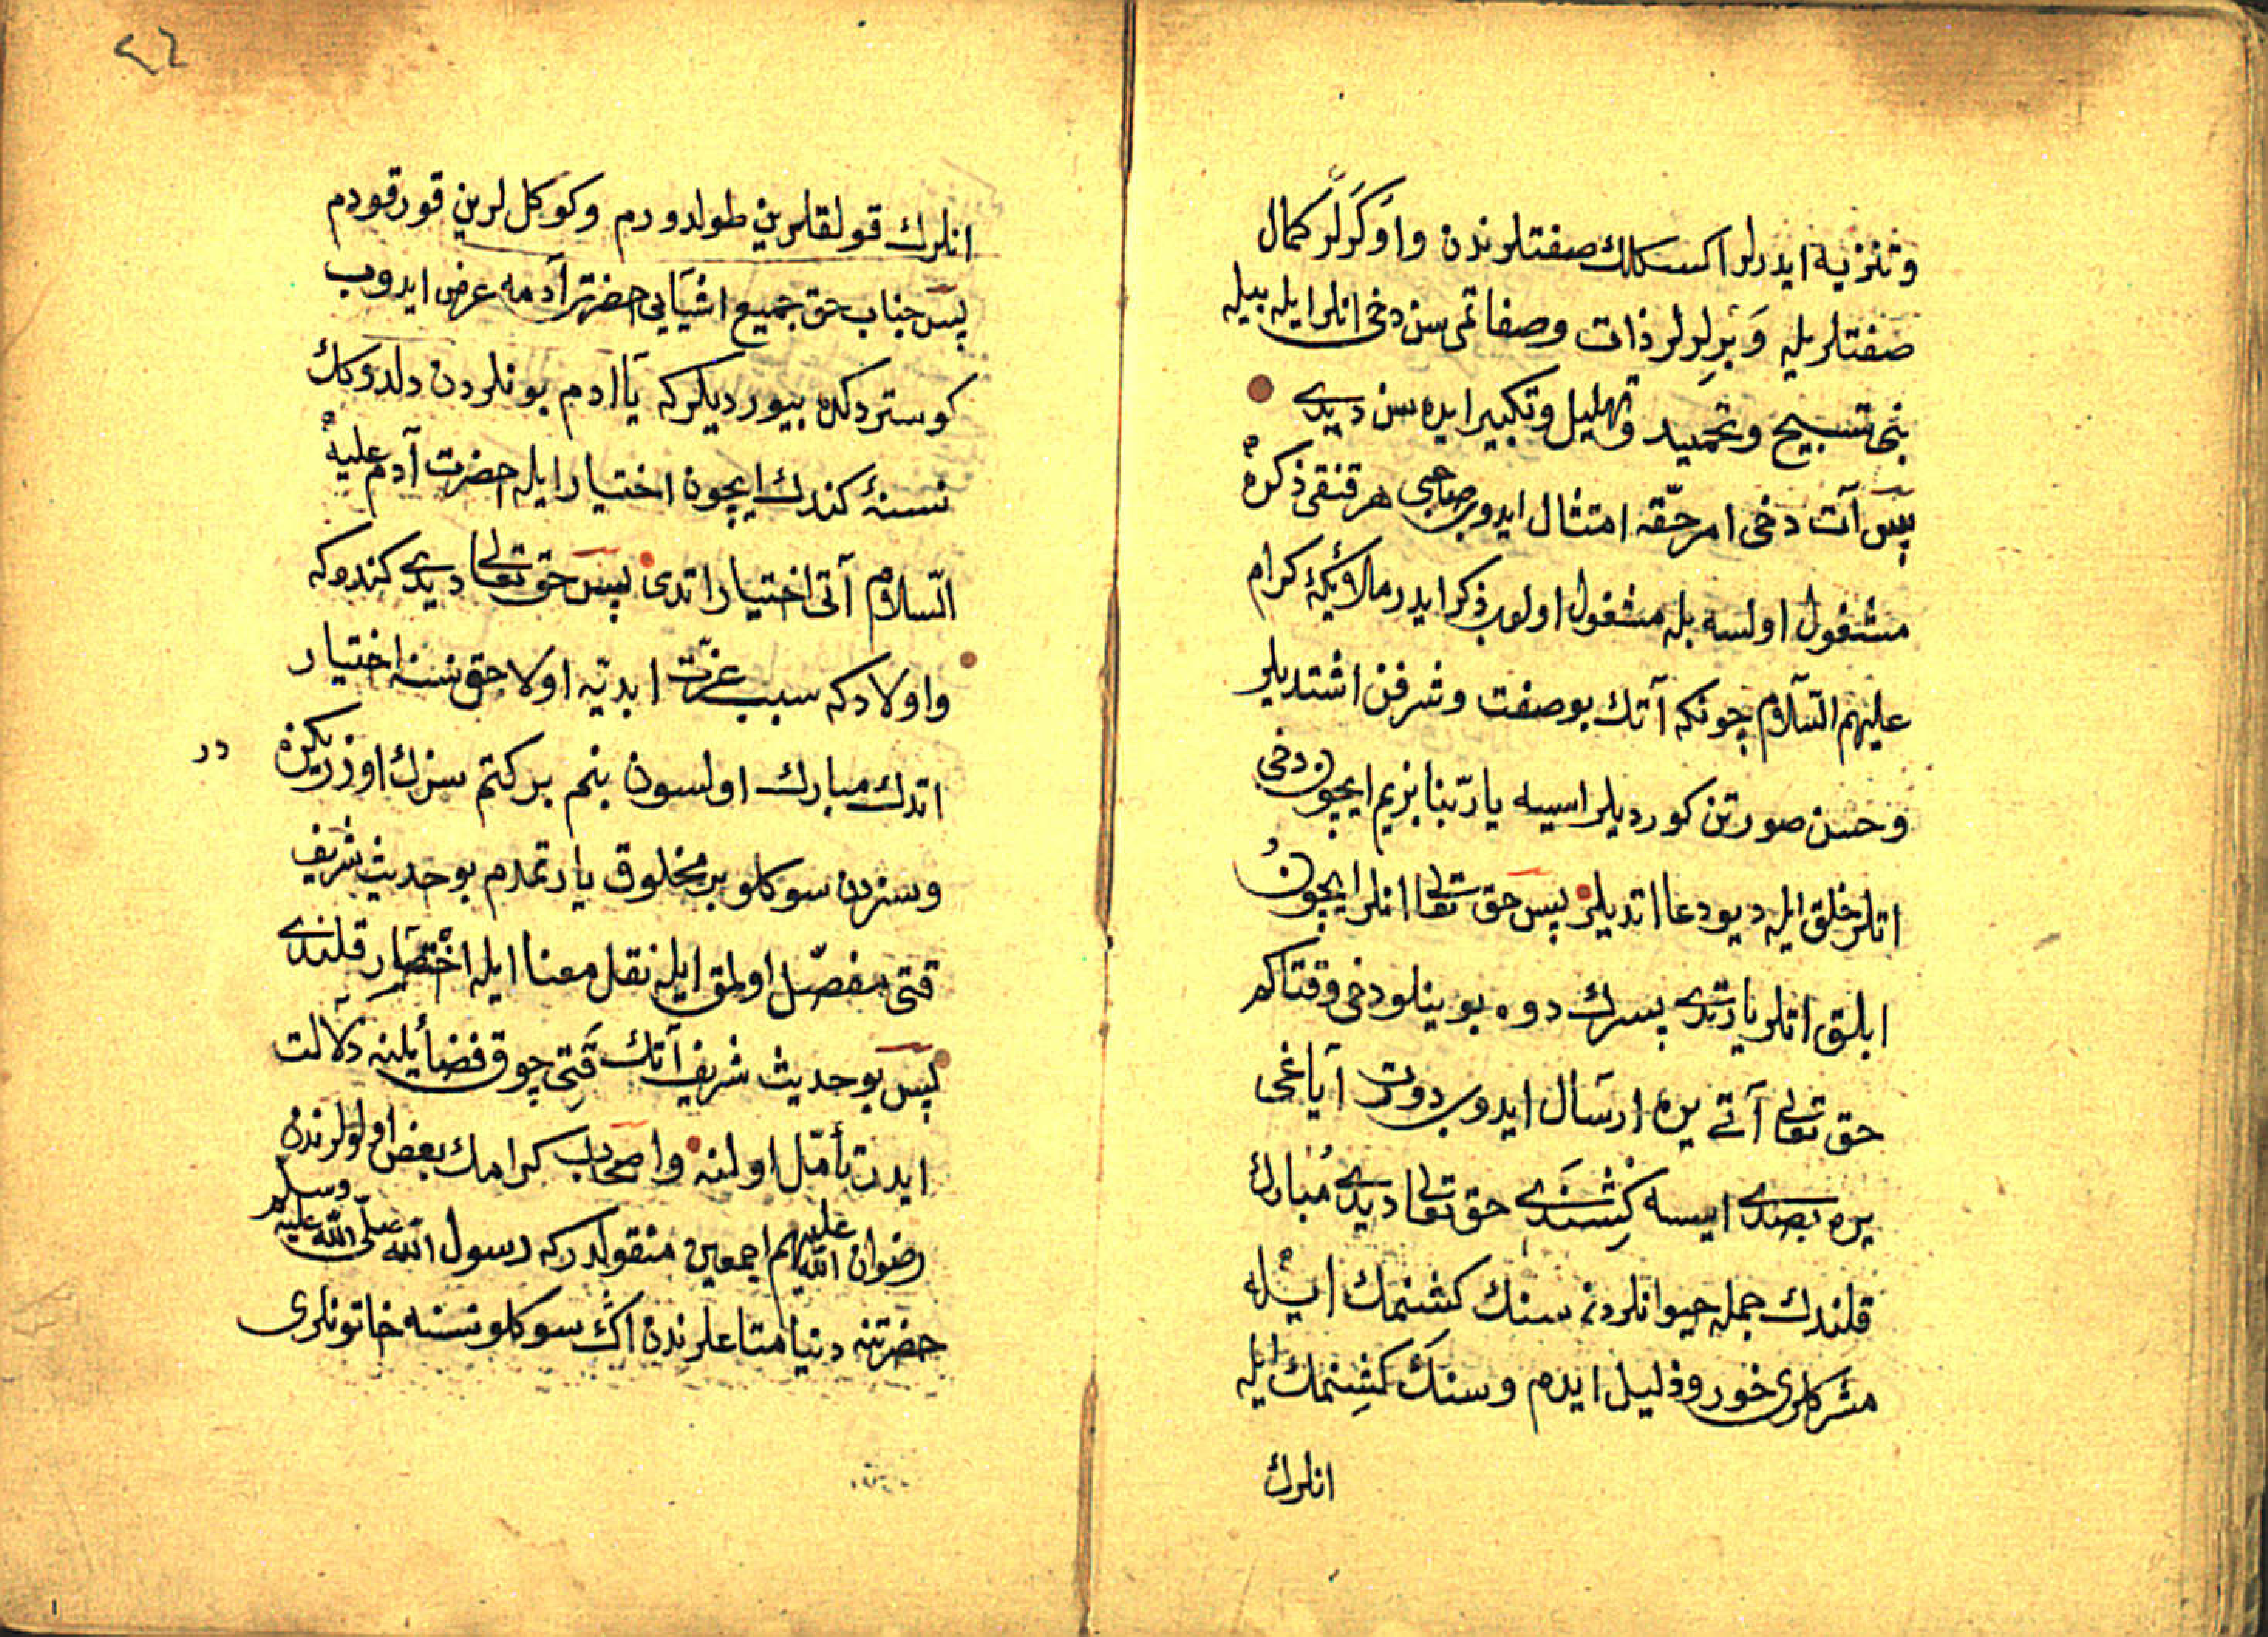 وتنزيه ايدرلر اكسكلك صفتلرندن واوكرلر كمال
صفتلريله وبرلرلر ذات وصفاتمى سن دخى انلر ايله بيله
بنى تسبيح وتحميد وتهليل وتكبير ايده سن ديدى
پس آت دخى امر حقه امتثال ايدوب صاحبى هر قنقى ذكره
مشغول اولسه بله مشغول اولوب ذكر ايدر ملائكۀ كرام
عليهم السلام چونكه آتك بو صفت وشرفن اشتديلر
وحسن صورتن كورديلر ايسه يا ربنا بزيم ايچون دخى
اتلر خلق ايله ديو دعا اتديلر پس حق تعالى انلر ايچون
ابلق اتلر يارتدى بسرك دوه بوينلو دخى وقتاكم
حق تعالى آتى يره ارسال ايدوب دورت آياغى
يره بصدى ايسه كشندى حق تعالى ديدى مبارك
قلندك جمله حيوانلردن سنك كشنمك ايله
مشركلرى خور وذليل ايدم وسنك كشنمك ايله
انلرك
انلرك قولقلرين طولدورم وكوكللرين قورقودم
پس جناب حق جميع اشيايى حضرت آدمه عرض ايدوب
كوستردكده بيورديلركه يا ادم بونلردن دلدوكك
نسنۀ كندك ايچون اختيار ايله حضرت آدم عليه
السلام آتى اختيار اتدى پس حق تعالى ديدى كندوكه
واولادكه سبب عزت ابديه اولاجق نسنه اختيار
اتدك مبارك اولسون بنم بركتم سزك اوزريكزه
در
وسزدن سوكلو بر مخلوق يارتمدم بو حديث شريف
قتى مفصل اولمق ايله نقل معنا ايله اختصار قلندى
پس بو حديث شريف آتك قتى چوق فضائلنه دلالت
ايدر تأمل اولنه واصحاب كرامك بعض اولولرندن
رضوان الله عليهم اجمعين منقولدركه رسول الله صلى الله عليه وسلم
حضرتنه دنيا متاعلرندن اك سوكلو نسنه خاتونلرى